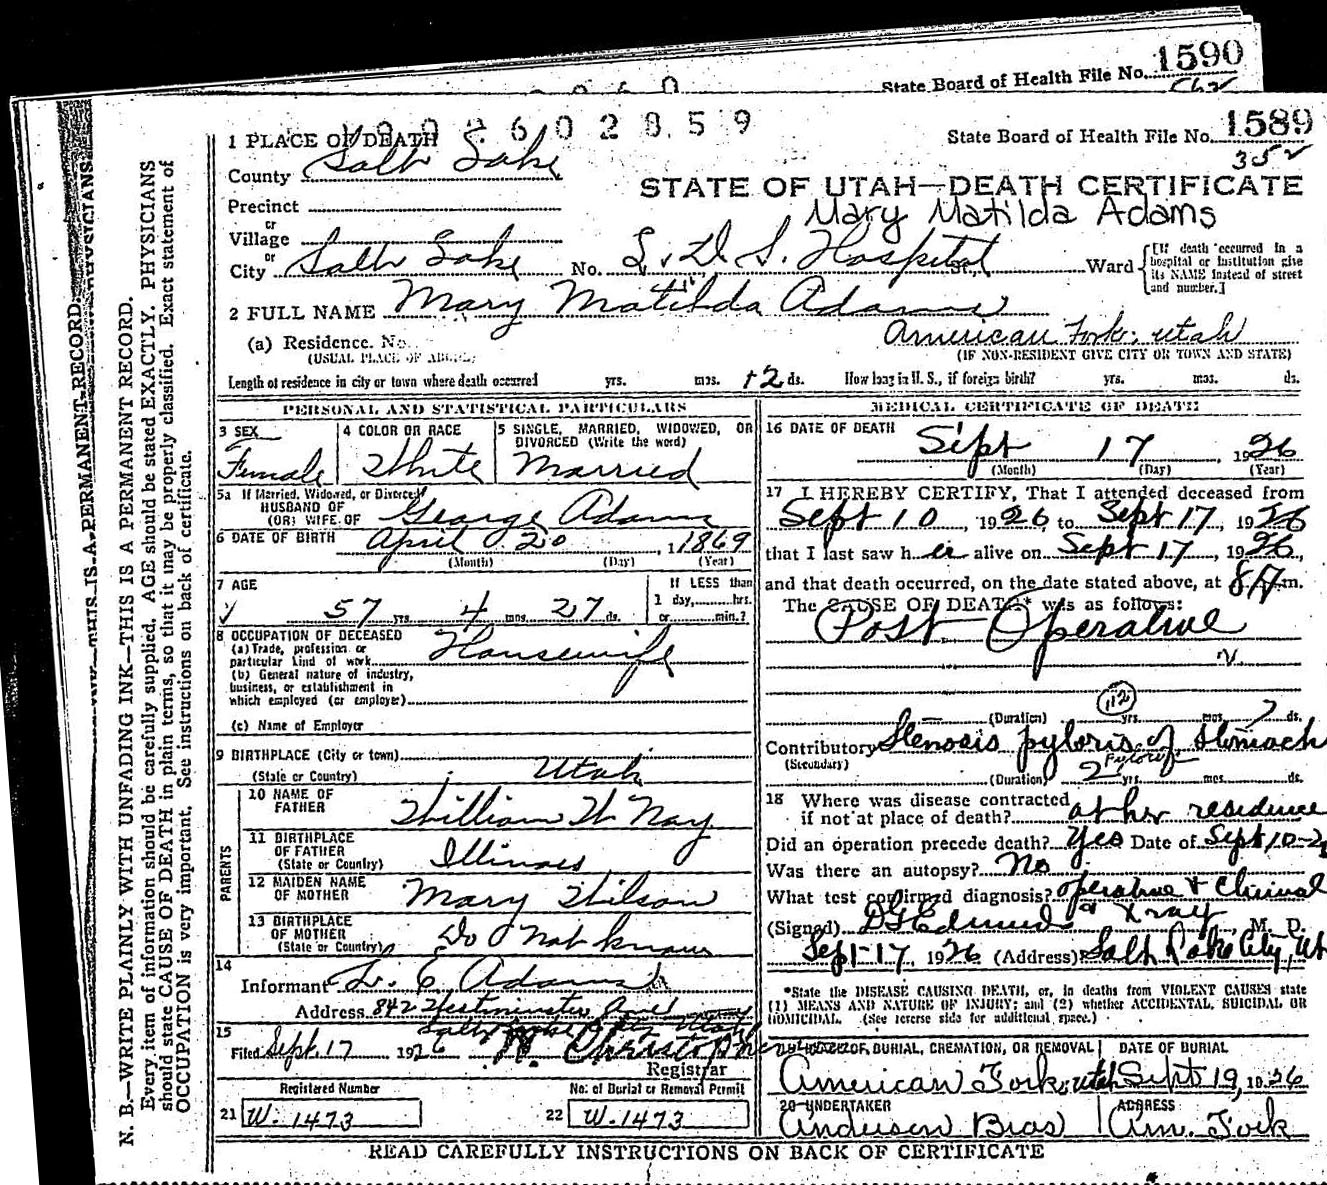 State Board of Health File No. 1590
562
State Board of Health File No. 1589
352
1 PLACE OF DEATH
2602859
County Salt Lake
STATE OF UTAH—DEATH CERTIFICATE
Mary Matilda Adams
Precinct
or
Village
or
City Salt Lake No. L. D. S. Hospital St., Ward
[If death occurred in a
hospital or institution give
its NAME instead of street
and number.]
2 FULL NAME Mary Matilda Adams
(a) Residence. No. American Fork, Utah
(USUAL PLACE OF ABODE) (IF NON-RESIDENT GIVE CITY OR TOWN AND STATE)
Length of residence in city or town where death occurred yrs. mos. 12 ds. How long in U. S., if foreign birth? yrs. mos. ds.
PERSONAL AND STATISTICAL PARTICULARS
3 SEX
Female
4 COLOR OR RACE
White
5 SINGLE, MARRIED, WIDOWED, OR
DIVORCED (Write the word)
Married
5a If Married, Widowed, or Divorced
HUSBAND OF
(OR) WIFE OF George Adams
6 DATE OF BIRTH April 20, 1869
(Month) (Day) (Year)
7 AGE
57 yrs. 4 mos. 27 ds.
If LESS than
1 day, hrs.
or min.?
8 OCCUPATION OF DECEASED
(a) Trade, profession or
particular kind of work Housewife
(b) General nature of industry,
business, or establishment in
which employed (or employer)
(c) Name of Employer
9 BIRTHPLACE (City or town)
(State or Country) Utah
PARENTS
10 NAME OF
FATHER William W Nay
11 BIRTHPLACE
OF FATHER
(State or Country) Illinois
12 MAIDEN NAME
OF MOTHER Mary Wilson
13 BIRTHPLACE
OF MOTHER
(State or Country) Do not know
14
Informant L. E. Adams
Address 842 Westminster Ave
Salt Lake City Utah
15
Filed Sept. 17 1926
Registrar
Registered Number No. of Burial or Removal Permit
21 W. 1473 22 W. 1473
MEDICAL CERTIFICATE OF DEATH
16 DATE OF DEATH
Sept 17, 1926
(Month) (Day) (Year)
17 I HEREBY CERTIFY, That I attended deceased from
Sept 10, 1926 to Sept 17, 1926
that I last saw her alive on Sept 17, 1926,
and that death occurred, on the date stated above, at 8 A m.
The CAUSE OF DEATH* was as follows:
Post Operative
112
(Duration) yrs. mos. 7 ds.
Contributory Stenosis pyloris of stomach
(Secondary)
(Duration) 2 yrs. mos. ds.
18 Where was disease contracted
if not at place of death? at her residence
Did an operation precede death? Yes Date of Sept 10-26
Was there an autopsy? No
What test confirmed diagnosis? operative & Clinical
& Xray
(Signed) D G Edmunds, M. D.
Sept-17, 1926 (Address) Salt Lake City, Ut
*State the DISEASE CAUSING DEATH, or, in deaths from VIOLENT CAUSES state
(1) MEANS AND NATURE OF INJURY; and (2) whether ACCIDENTAL, SUICIDAL OR
HOMICIDAL. (See reverse side for additional space.)
OF BURIAL, CREMATION, OR REMOVAL
American Fork, Utah
DATE OF BURIAL
Sept 19, 1926
20 UNDERTAKER
Anderson Bros
ADDRESS
Am. Fork
READ CAREFULLY INSTRUCTIONS ON BACK OF CERTIFICATE
N. B.—WRITE PLAINLY WITH UNFADING INK—THIS IS A PERMANENT RECORD.
Every item of information should be carefully supplied. AGE should be stated EXACTLY. PHYSICIANS
should state CAUSE OF DEATH in plain terms, so that it may be properly classified. Exact statement of
OCCUPATION is very important. See instructions on back of certificate.
THIS IS A PERMANENT RECORD.
PHYSICIANS